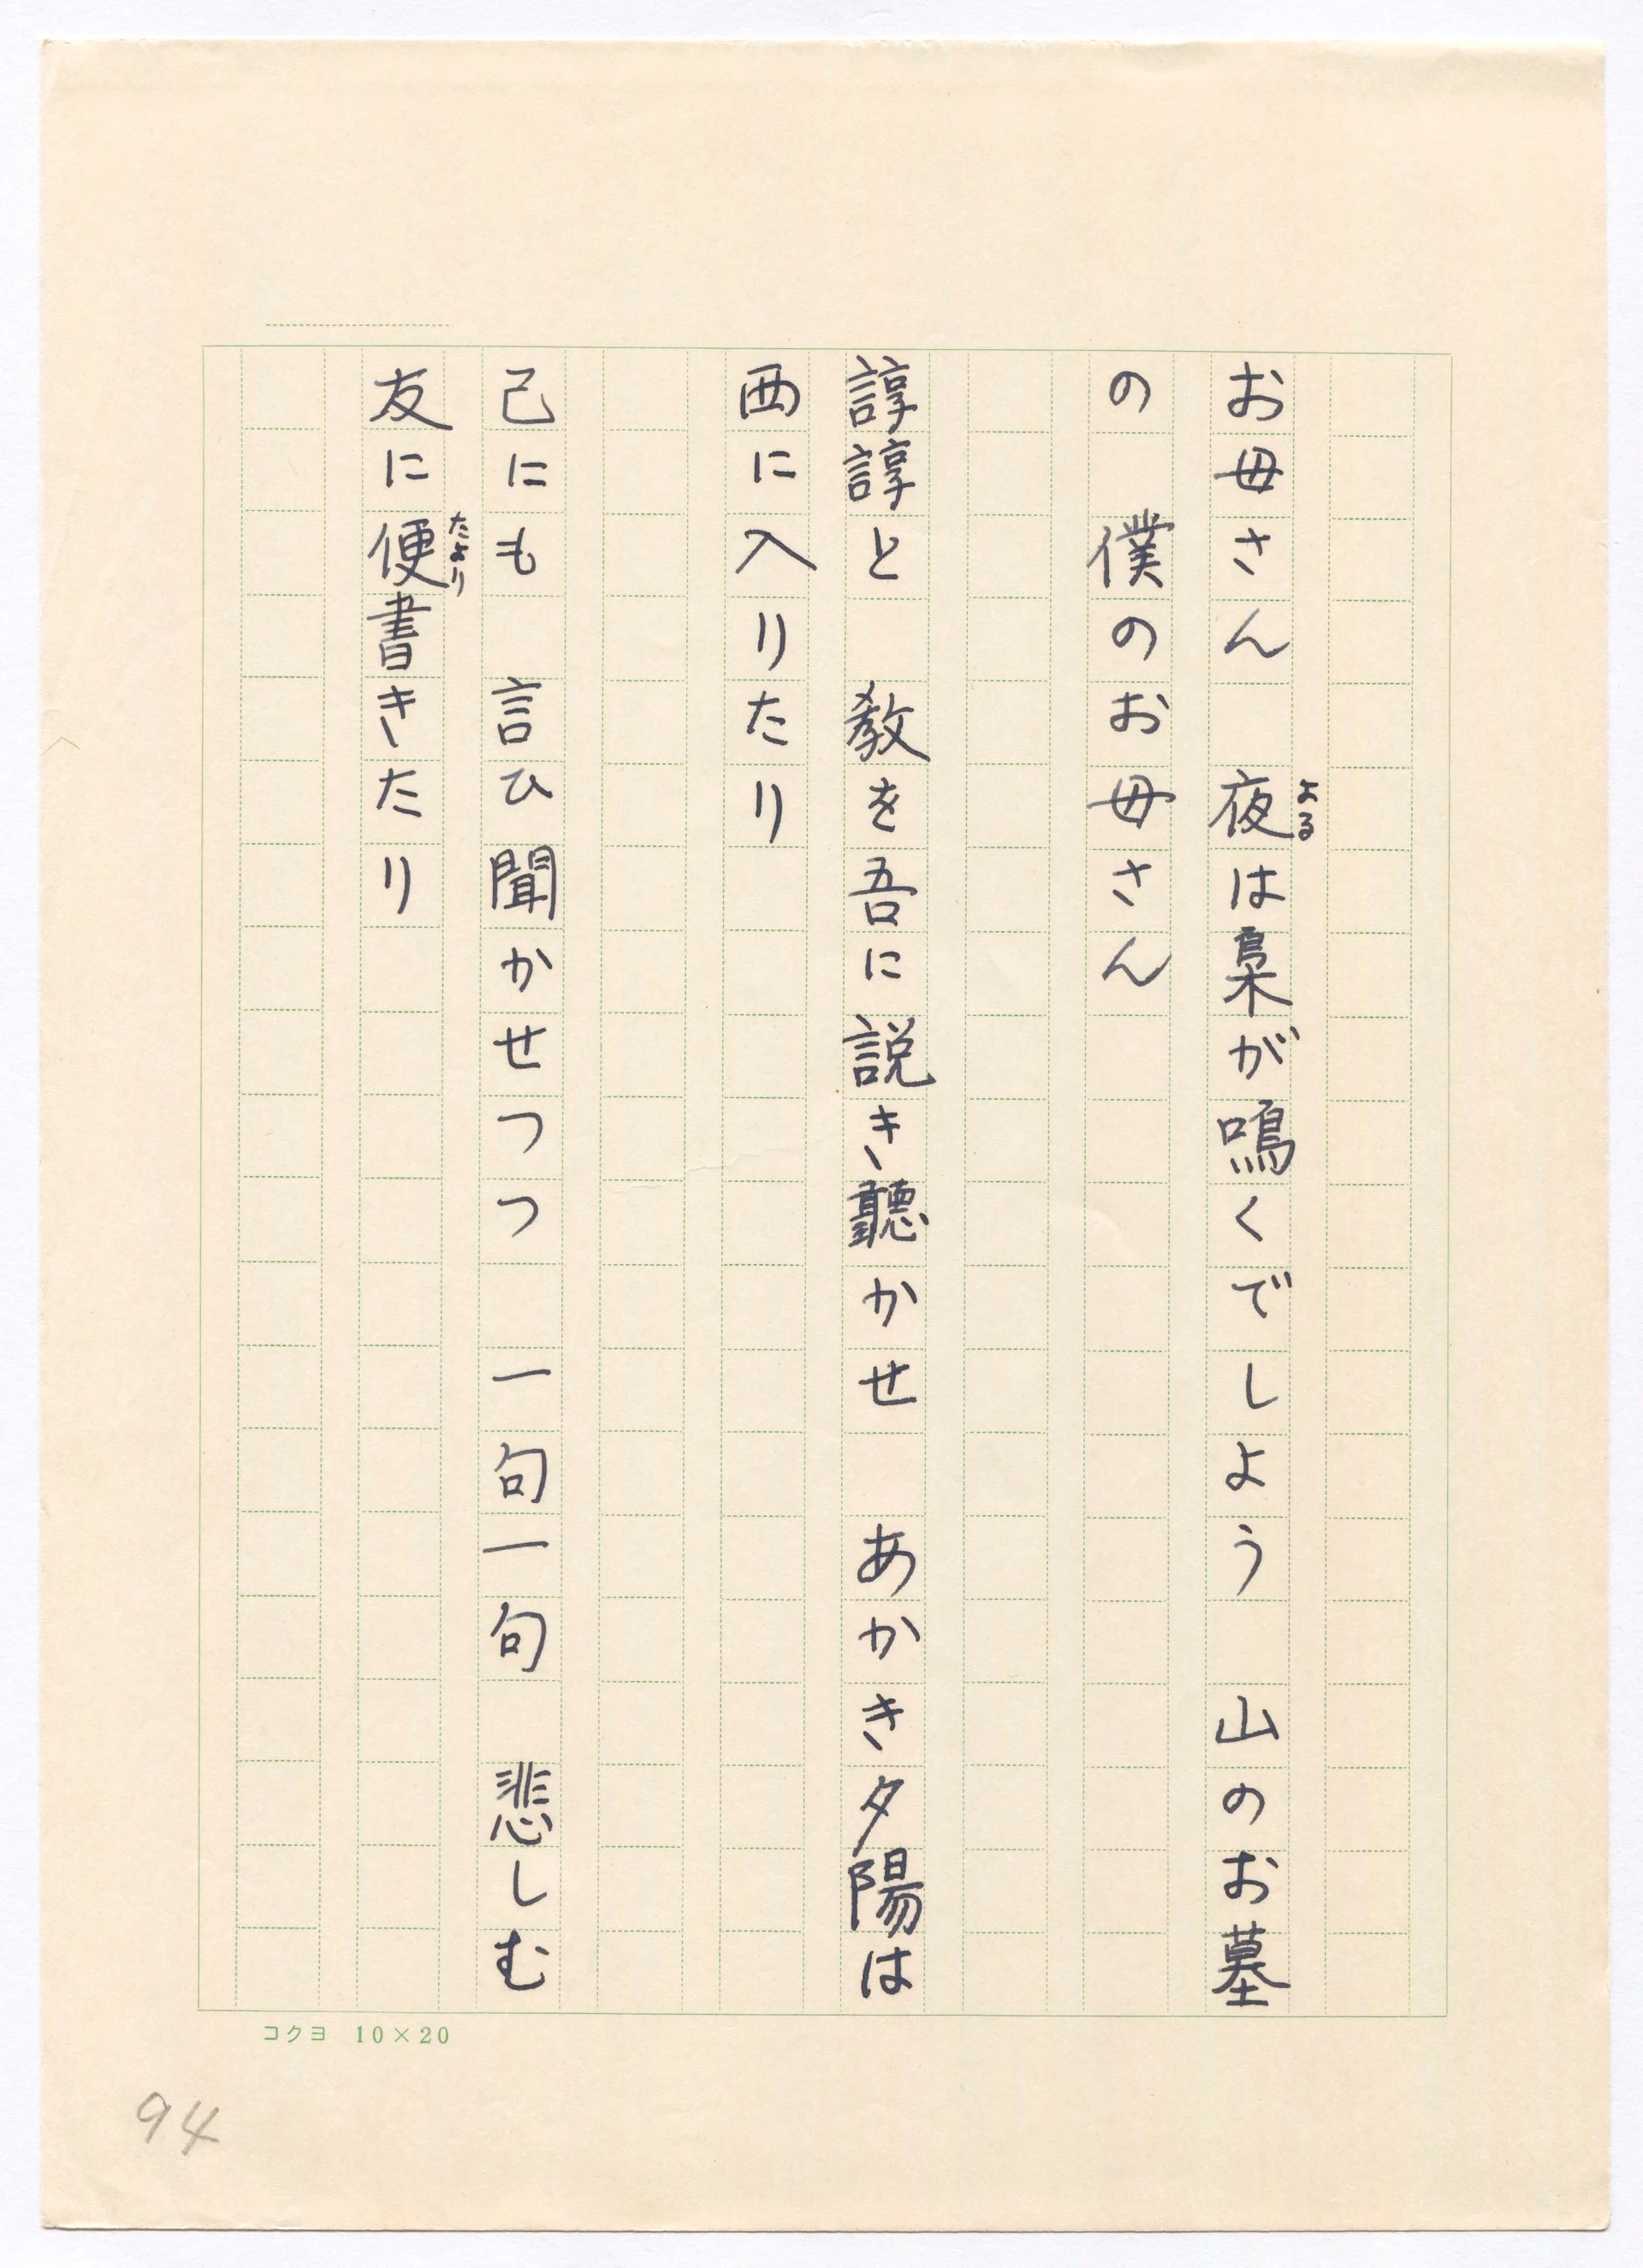 お母さん　夜は梟が鳴くでしよう　山のお墓
よる
の　僕のお母さん
諄諄と　教を吾に説き聴かせ　あかき夕陽は
西に入りたり
己にも　言ひ聞かせつつ　一句一句　悲しむ
友に便書きたり
たより
コクヨ 10×20
94